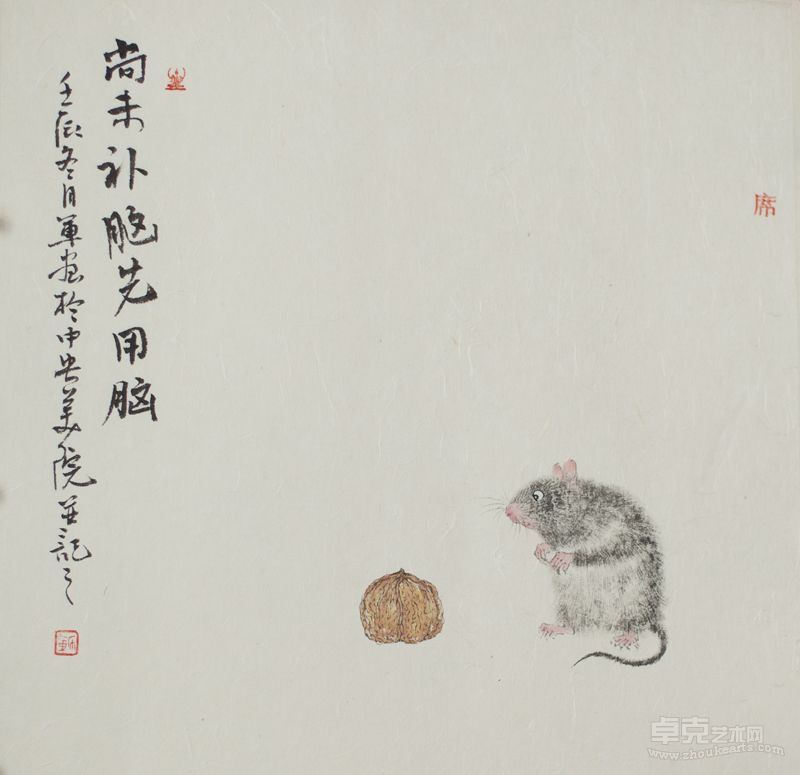 尚未补脑先用脑
壬辰冬月军画於中央美院并记之
席
卓克艺术网
www.zhoukearts.com